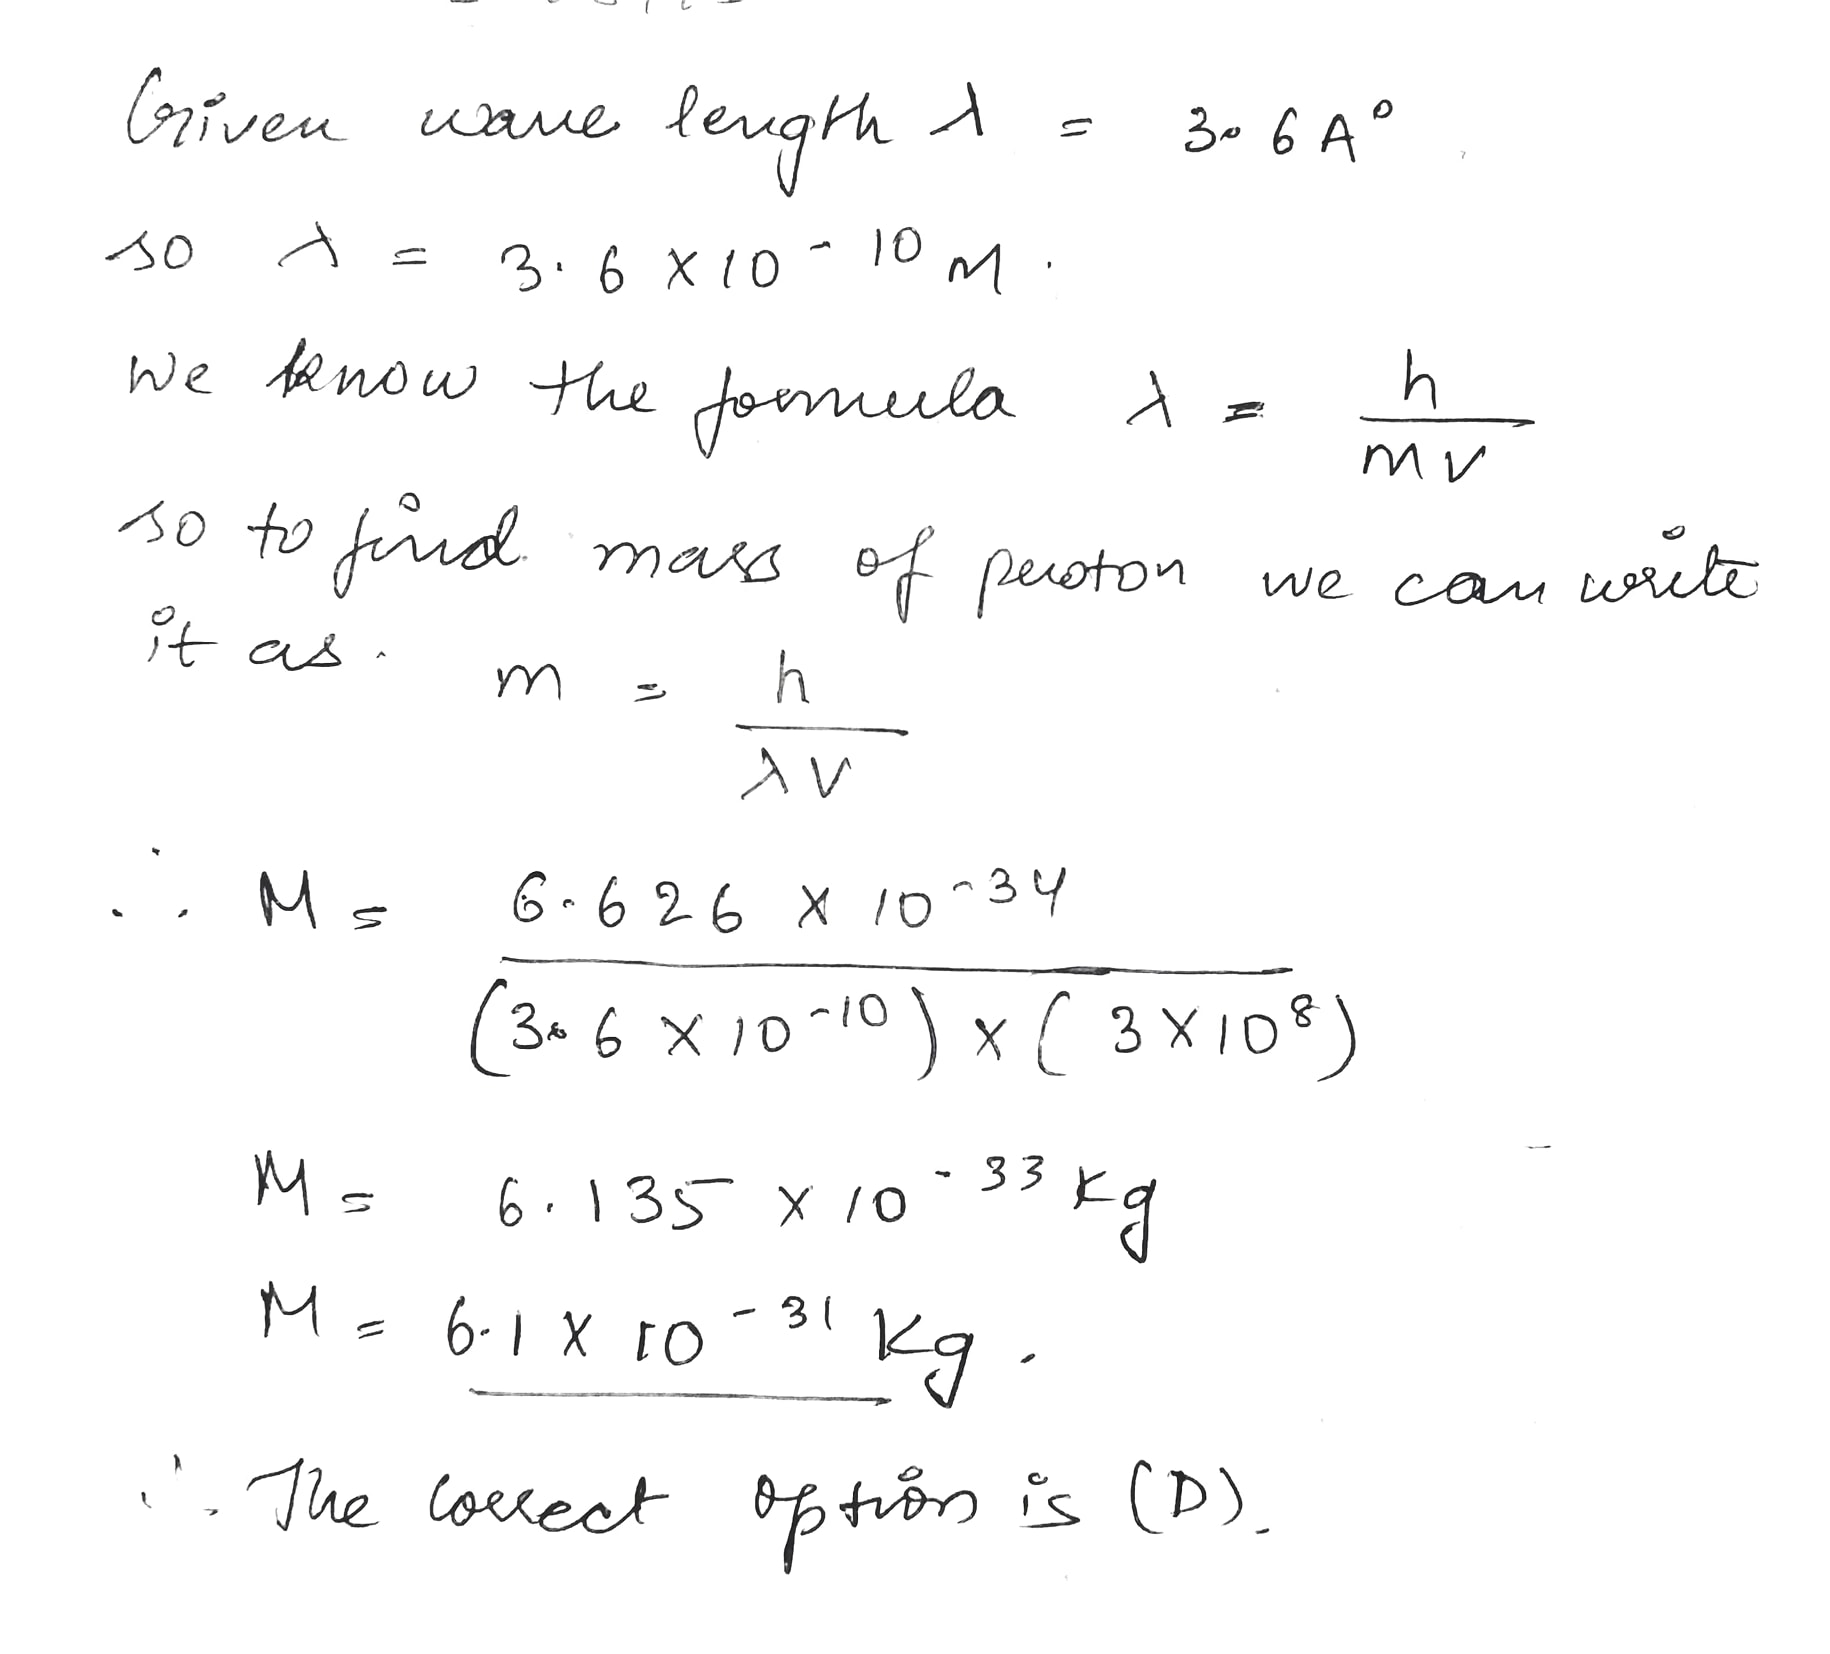 Given wave length λ = 3.6 A°
so λ = 3.6 x 10 - 10 M.
We know the formula λ = h / mv
so to find mass of proton we can write
it as. m = h / λv
∴ M = 6.626 x 10 -34 / (3.6 x 10 -10) x (3 x 10 8)
M = 6.135 x 10 - 33 kg
M = 6.1 x 10 - 31 kg.
∴ The correct option is (D).